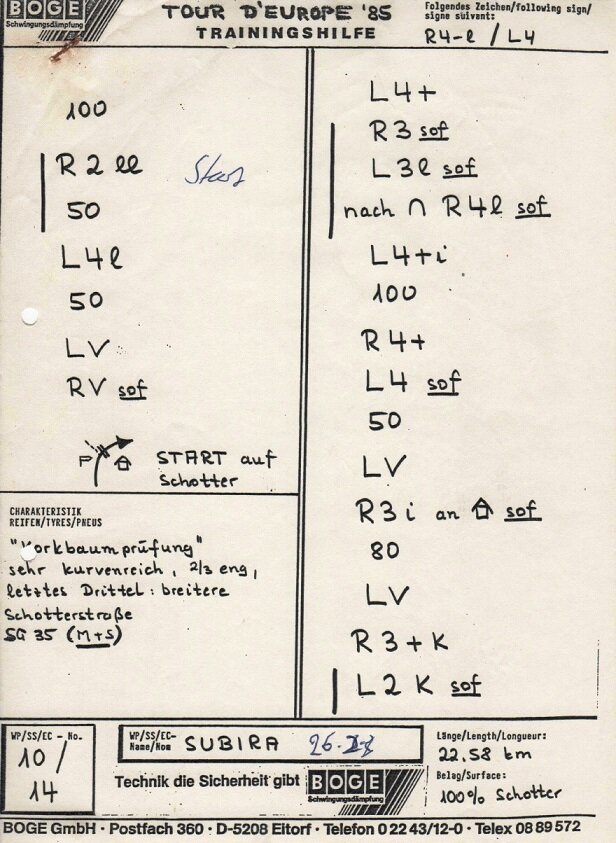 BOGE
Schwingungsdämpfung
TOUR D'EUROPE '85
TRAININGSHILFE
Folgendes Zeichen/following sign/
signe suivent:
R4-l / L4
100
R2 ll
50
L4l
50
LV
RV sof
P
START auf
Schotter
CHARAKTERISTIK
REIFEN/TYRES/PNEUS
"Korkbaumprüfung"
sehr kurvenreich, 2/3 eng,
letztes Drittel: breitere
Schotterstraße
SG 35 (M+S)
L4+
R3 sof
L3l sof
nach ∩ R4l sof
L4+i
100
R4+
L4 sof
50
LV
R3i an sof
80
LV
R3+K
L2K sof
WP/SS/EC - No.
10/
14
WP/SS/EC-
Name/Nom
SUBIRA
Länge/Length/Longueur:
22.58 km
Belag/Surface:
100% Schotter
Technik die Sicherheit gibt
BOGE
Schwingungsdämpfung
BOGE GmbH · Postfach 360 · D-5208 Eitorf · Telefon 0 22 43/12-0 · Telex 08 89 572